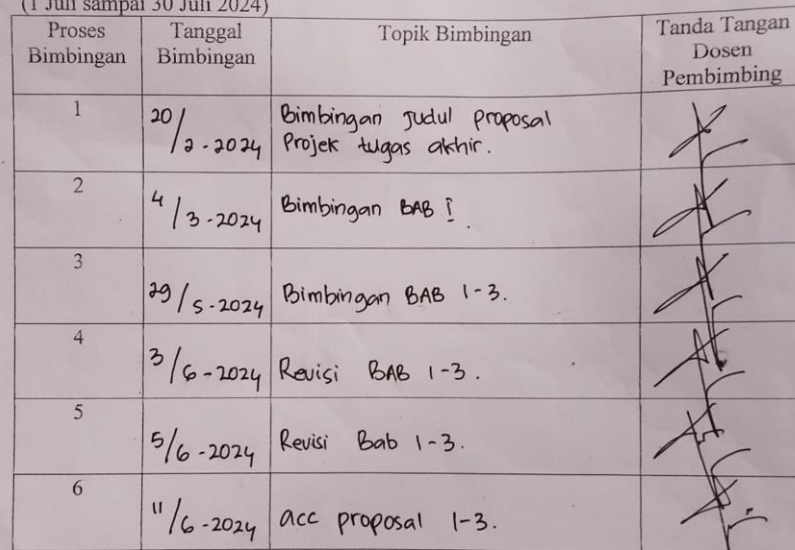 (1 Juli sampai 30 Juli 2024)
Proses Bimbingan
Tanggal Bimbingan
Topik Bimbingan
Tanda Tangan Dosen Pembimbing
1
20/2-2024
Bimbingan Judul proposal
Projek tugas akhir.
2
4/3-2024
Bimbingan BAB I.
3
29/5-2024
Bimbingan BAB 1-3.
4
3/6-2024
Revisi BAB 1-3.
5
5/6-2024
Revisi Bab 1-3.
6
11/6-2024
acc proposal 1-3.